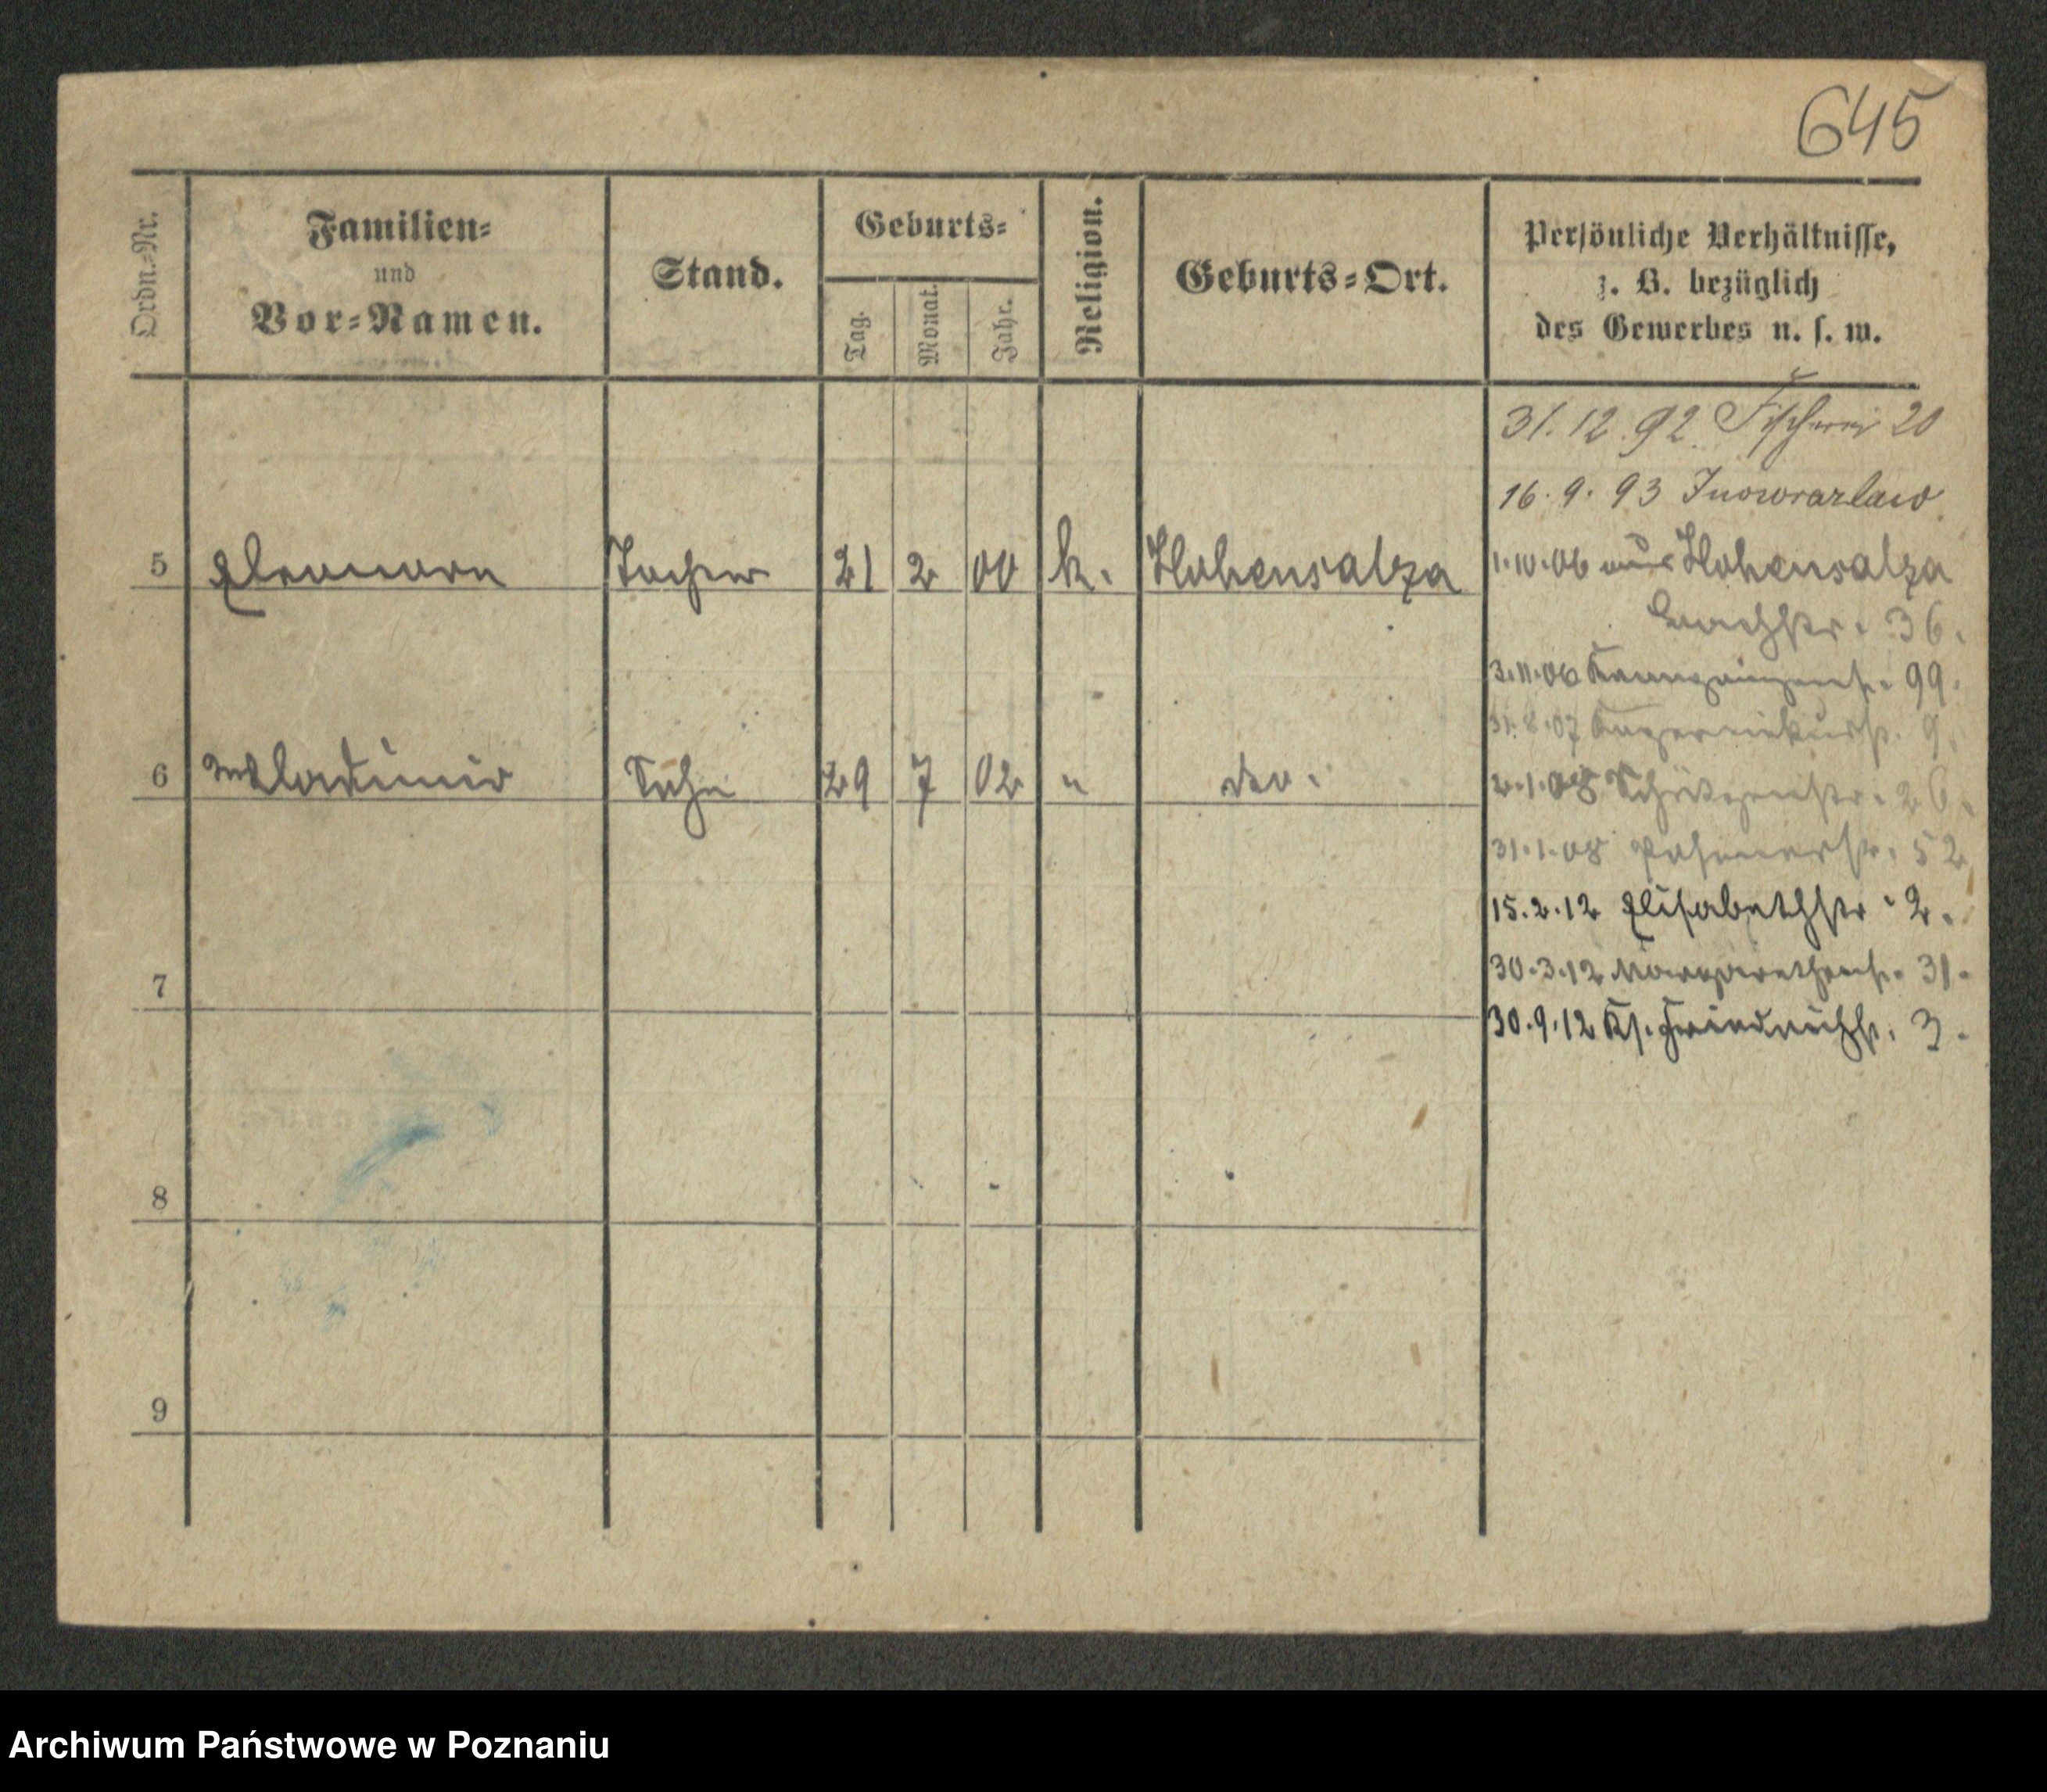 645
Ordn.-Nr.
Familien-
und
Vor-Namen.
Stand.
Geburts-
Tag.
Monat.
Jahr.
Religion.
Geburts-Ort.
Persönliche Verhältnisse,
z. B. bezüglich
des Gewerbes u. s. w.
31. 12. 92 Fischerei 20
16. 9. 93 Inowrazlaw
5 Eleonora Tochter 21 2 00 k. Hohensalza
1.10.06 aus Hohensalza
36.
3.11.06 99.
31.8.07 9.
6 Wladimir Sohn 29 7 02 " do.
2.1.08 Schützenstr. 26.
31.1.08 Posenerstr. 52
15.2.12 Elisabethstr. 2.
7
30.3.12 Margarethenstr. 31.
30.9.12 Ks. Friedrichstr. 3.
8
9
Archiwum Państwowe w Poznaniu